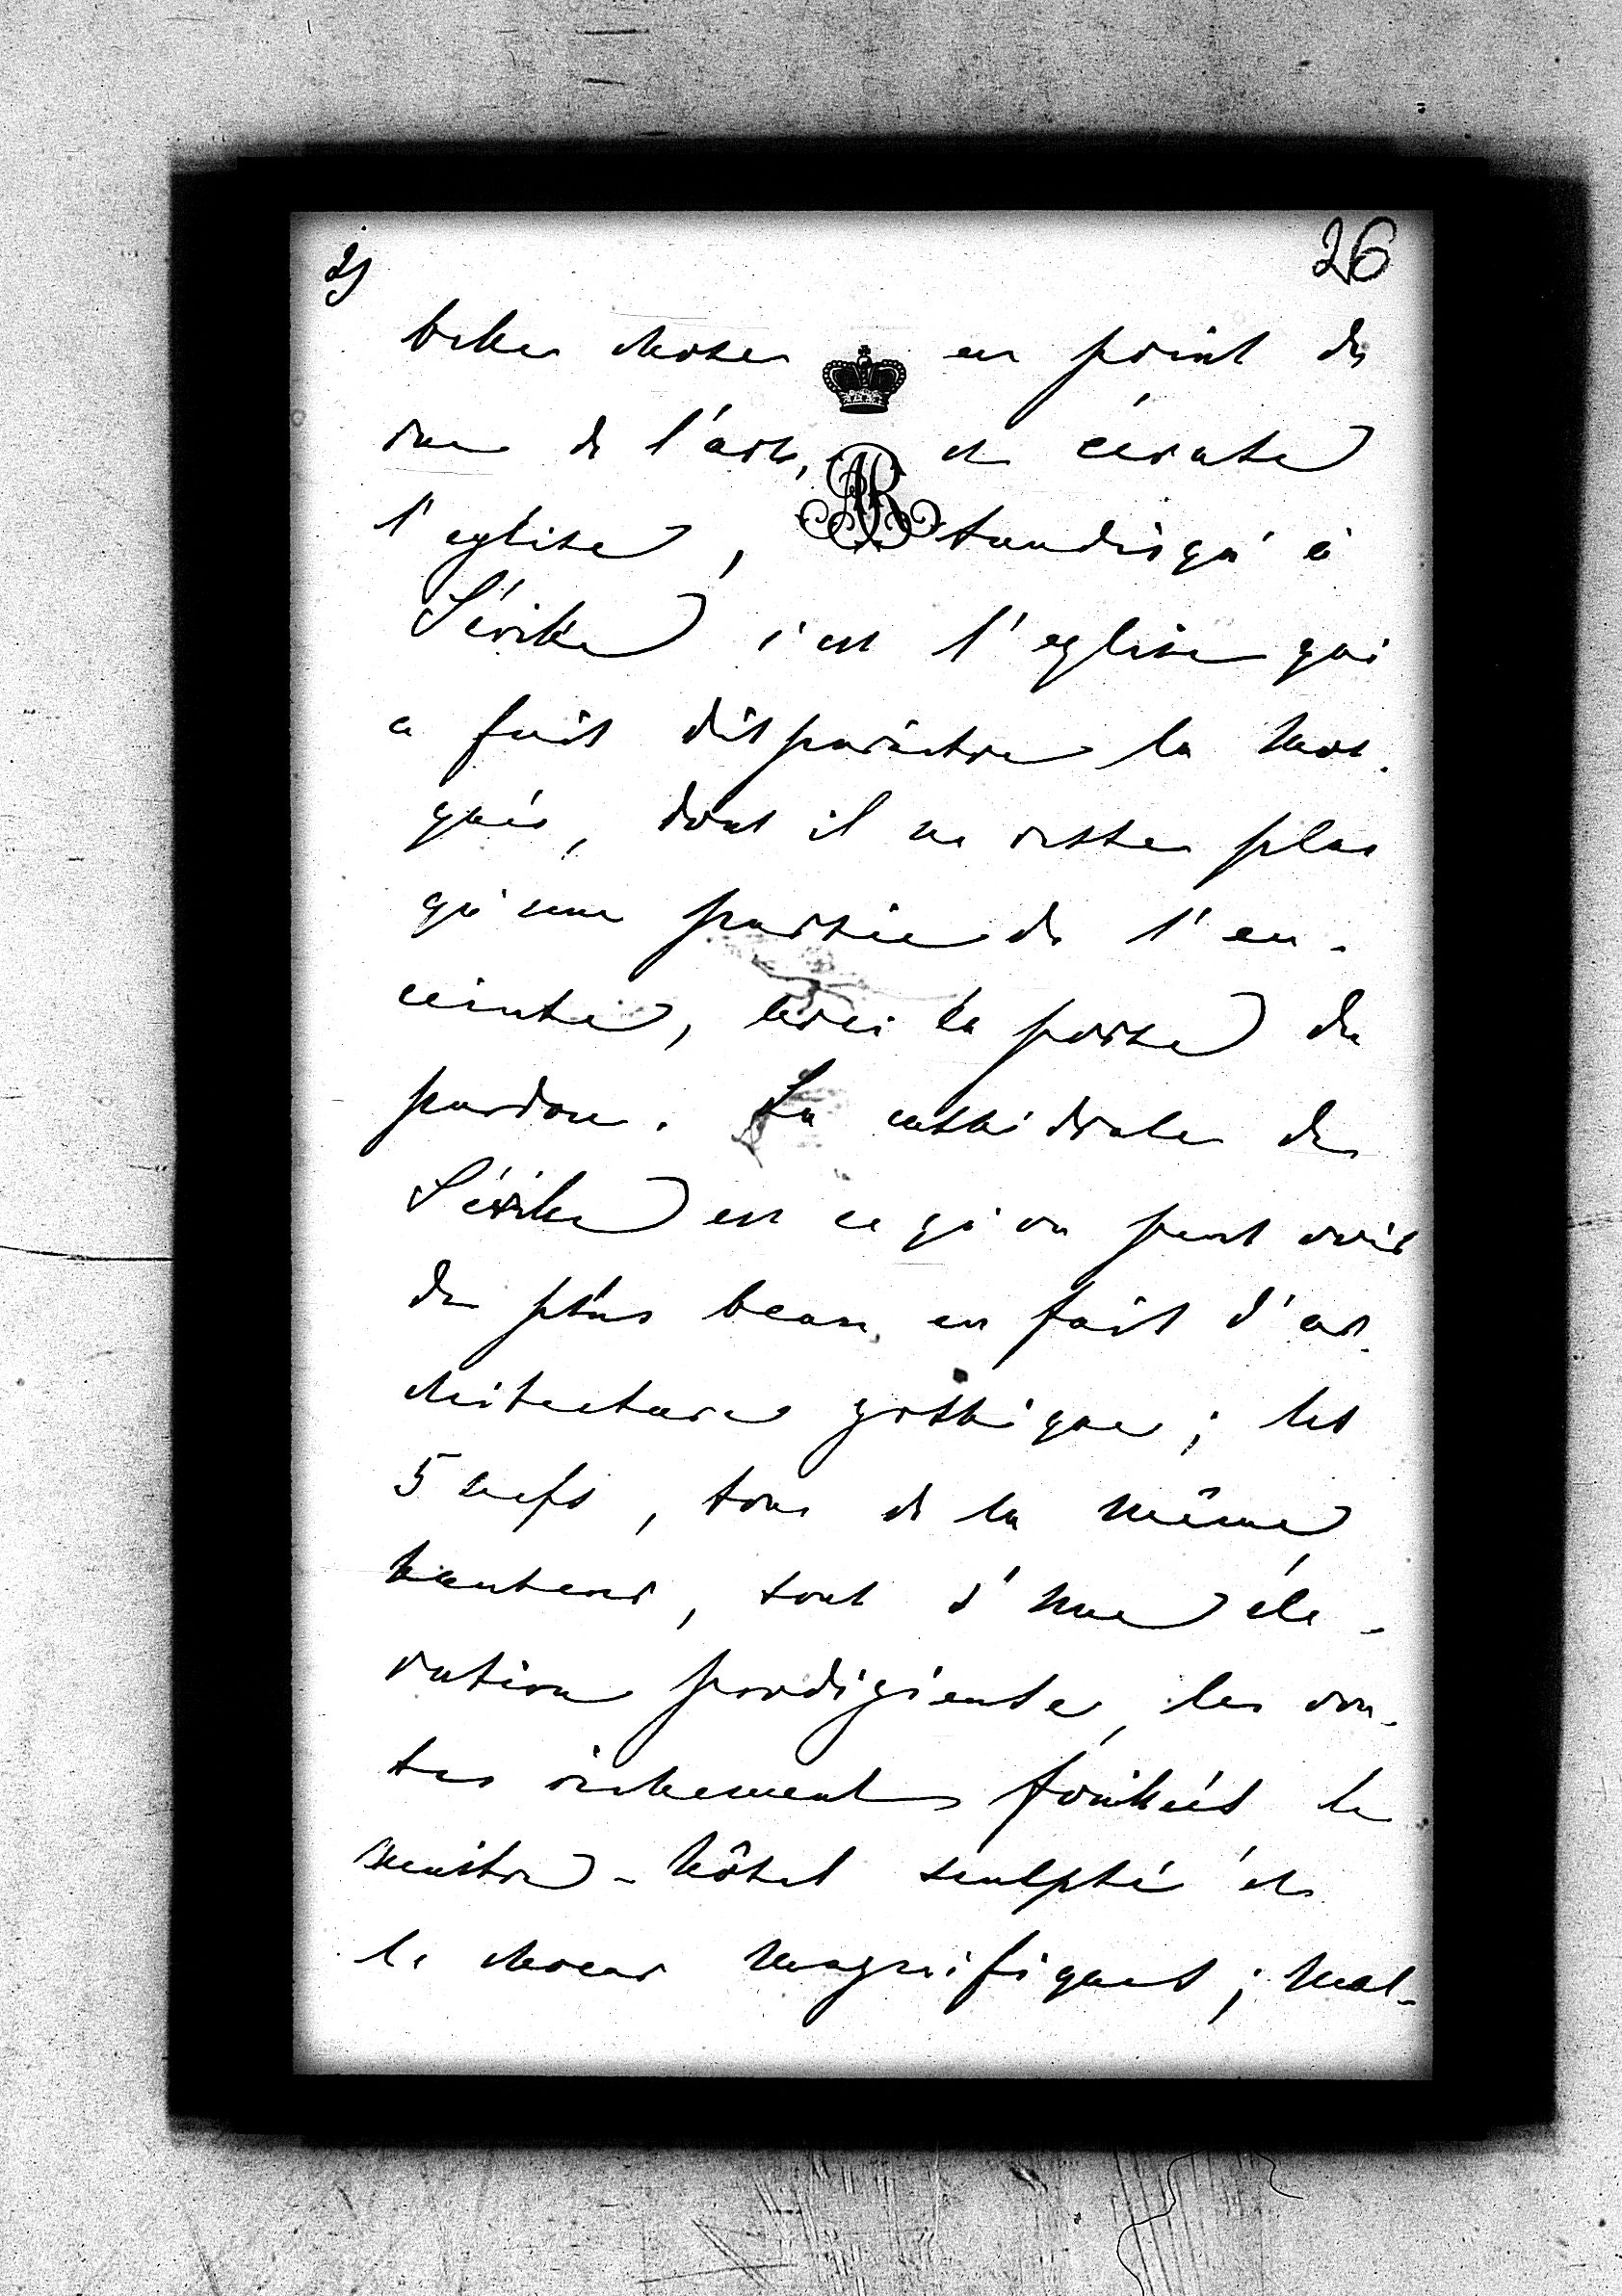 2)
26
belles choses en point de
vue de l'art, et ensuite
l'eglise, tandisqu' à
Séville c'est l'eglise qui
a fait disparâitre la mos-
quée, dont il ne reste plus
qu'une partie de l'en-
ceinte, la porte du
pardon. La cathédrale de
Séville est ce qu'on peut voir
de plus beau, en fait d'ar-
chitecture gothique; les
5 nefs, tous de la même
hauteur, sont d'une élé-
vation prodigieuse, les vou-
tes richement fouillées le
maitre-hôtel sculpté et
le choeur magnifiques; mal-